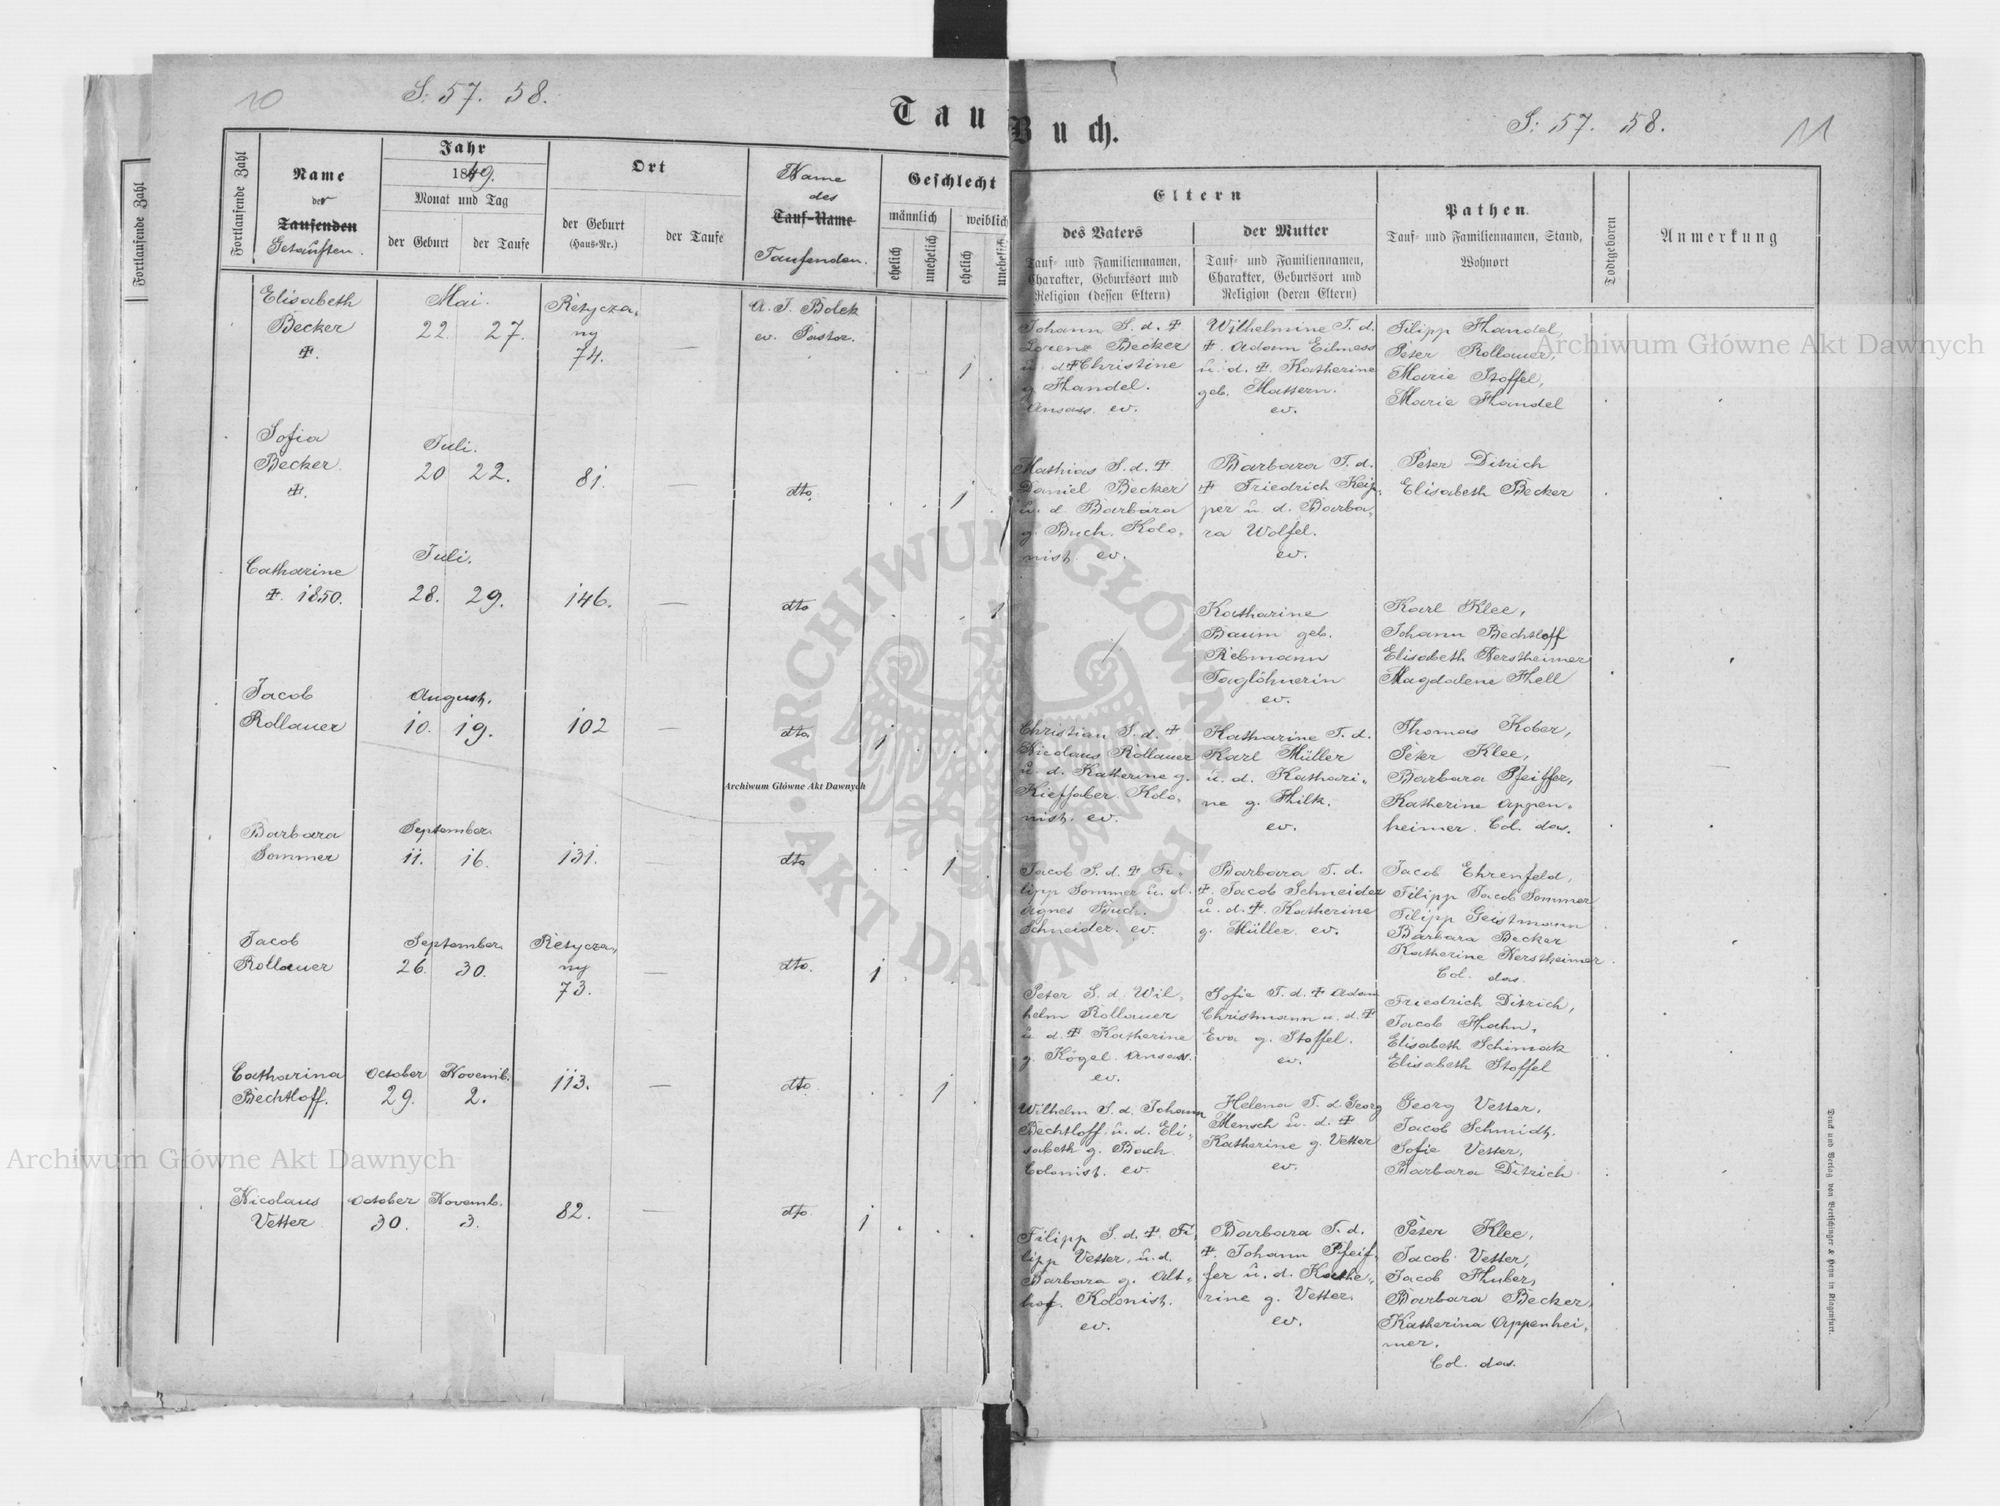 10
S: 57. 58.
Tau
Buch.
S: 57. 58.
11
Fortlaufende Zahl
Fortlaufende Zahl
Name
der
Taufenden
Getauften.
Jahr
1849.
Monat und Tag
der Geburt
der Taufe
Ort
der Geburt
(Haus-Nr.)
der Taufe
Name
des
Tauf-Name
Taufenden.
Geschlecht
männlich
weiblich
ehelich
unehelich
ehelich
unehelich
Elisabeth
Becker
Mai.
22. 27.
Rėžycza,
ny
74. —
A. J. Bolek
ev. Pastor.
1
Sofia
Becker.
Juli.
20 22.
81. —
dto.
1
Catharine
1850.
Juli.
28. 29.
146. —
dto
1
Jacob
Rollauer
August.
10. 19.
102 —
dto.
1
Barbara
Sommer
September.
11. 16.
131. —
dto
1
Jacob
Rollauer
September.
26. 30.
ny
73. —
dto.
1
Catharina
Bechtloff.
October Novemb.
29. 2.
113. —
dto.
1
Nicolaus
Vetter
October Novemb.
30. 3.
82. —
dto.
1
Eltern
des Vaters
Tauf- und Familiennamen,
Charakter, Geburtsort und
Religion (dessen Eltern)
der Mutter
Tauf- und Familiennamen,
Charakter, Geburtsort und
Religion (deren Eltern)
Pathen.
Tauf- und Familiennamen, Stand,
Wohnort
Todtgeboren
Anmerkung
Johann S. d. ☩
Lorenz Becker
u. d ☩ Christine
g Handel.
Ansass. ev.
Wilhelmine T. d.
☩. Adam Eilmess
u. d. ☩. Katherine
geb. Mattern.
ev.
Filipp Handel,
Peter Rollauer,
Marie Stoffel,
Marie Handel
Mathias S. d. ☩
Daniel Becker
u. d Barbara
g. Buch. Kolo,
nist. ev.
Barbara T. d.
☩ Friedrich Keip,
per u. d. Barba,
ra Wolfel.
ev.
Peter Ditrich
Elisabeth Becker
Katharine
Baum geb.
Rebmann
Taglöhnerin
ev.
Karl Klee,
Johann Bechtloff
Elisabeth Kerstheimer
Magdalene Hell
Christian S. d. ☩
Nicolaus Rollauer
u. d. Katherine g.
Kieffaber. Kolo,
nist. ev.
Katharine T. d.
Karl Müller
u. d. Kathari,
ne g. Hilk.
ev.
Thomas Kober,
Peter Klee,
Barbara Pfeiffer,
Katherine Appen,
heimer. Col. das.
Jacob S. d. ☩ Fi,
lipp Sommer u. d.
Agnes Buch.
Schneider. ev.
Barbara T. d.
☩. Jacob Schneider
u. d. ☩. Katherine
g. Müller. ev.
Jacob Ehrenfeld,
Filipp Jacob Sommer
Filipp Geistmann
Barbara Becker
Katherine Kerstheimer
Col. das
Peter S. d. Wil,
helm Rollauer
u d. ☩ Katherine
g. Kögel. Ansass.
ev.
Sofie T. d. ☩ Adam
Christmann u. d. ☩
Eva g. Stoffel.
ev.
Friedrich Ditrich,
Jacob Hahn,
Elisabeth Schimak
Elisabeth Stoffel
Wilhelm S. d. Johann
Bechtloff u. d. Eli,
sabeth g. Bach.
Colonist. ev.
Helena T. d. Georg
Mensch u. d. ☩
Katherine g. Vetter
ev.
Georg Vetter,
Jacob Schmidt.
Sofie Vetter,
Barbara Ditrich
Filipp S. d. ☩. Fi,
lipp Vetter, u. d.
Barbara g. Alt,
hof. Kolonist.
ev.
Barbara T. d.
☩. Johann Pfeif,
fer u. d. Kathe,
rine g. Vetter.
ev.
Peter Klee,
Jacob Vetter,
Jacob Huber,
Barbara Becker,
Katherina Appenhei,
mer.
Col. das.
Druck und Verlag von Bertschinger & Heyn in Klagenfurt.
Archiwum Główne Akt Dawnych
Archiwum Główne Akt Dawnych
Archiwum Główne Akt Dawnych
ARCHIWUM GŁÓWNE AKT DAWNYCH